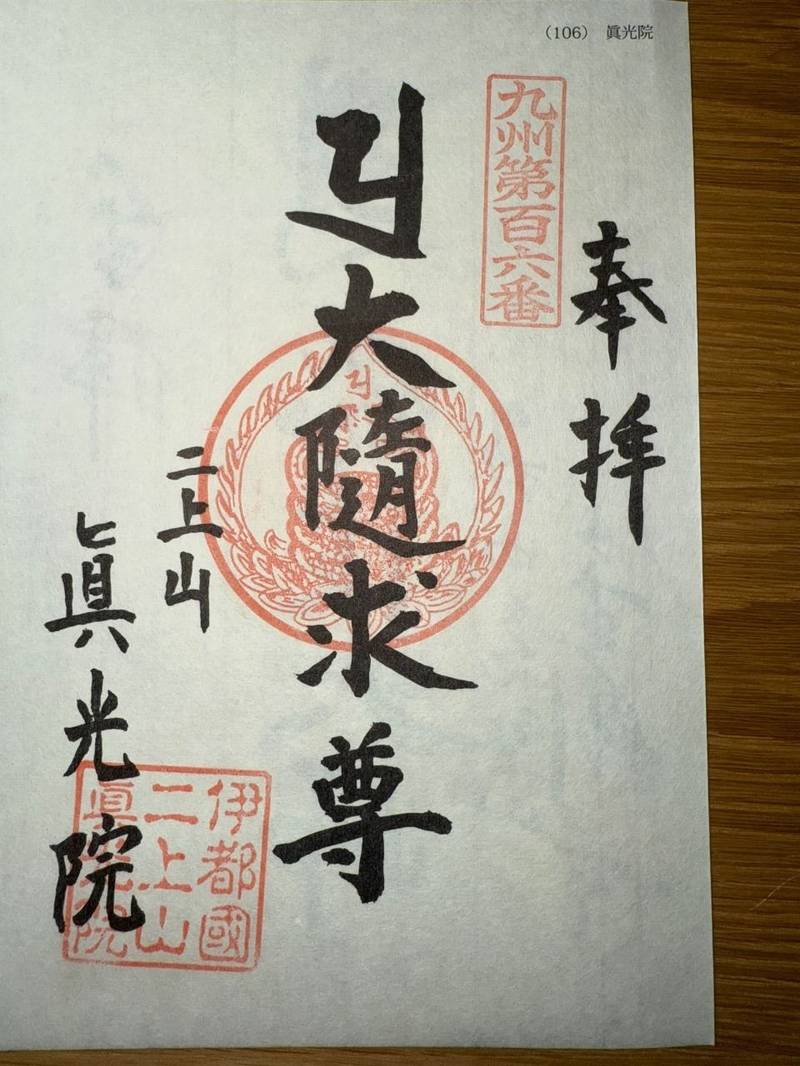 （106）　眞光院
九州第百六番
奉拝
大隨求尊
二上山
眞光院
伊都國
二上山
眞光院